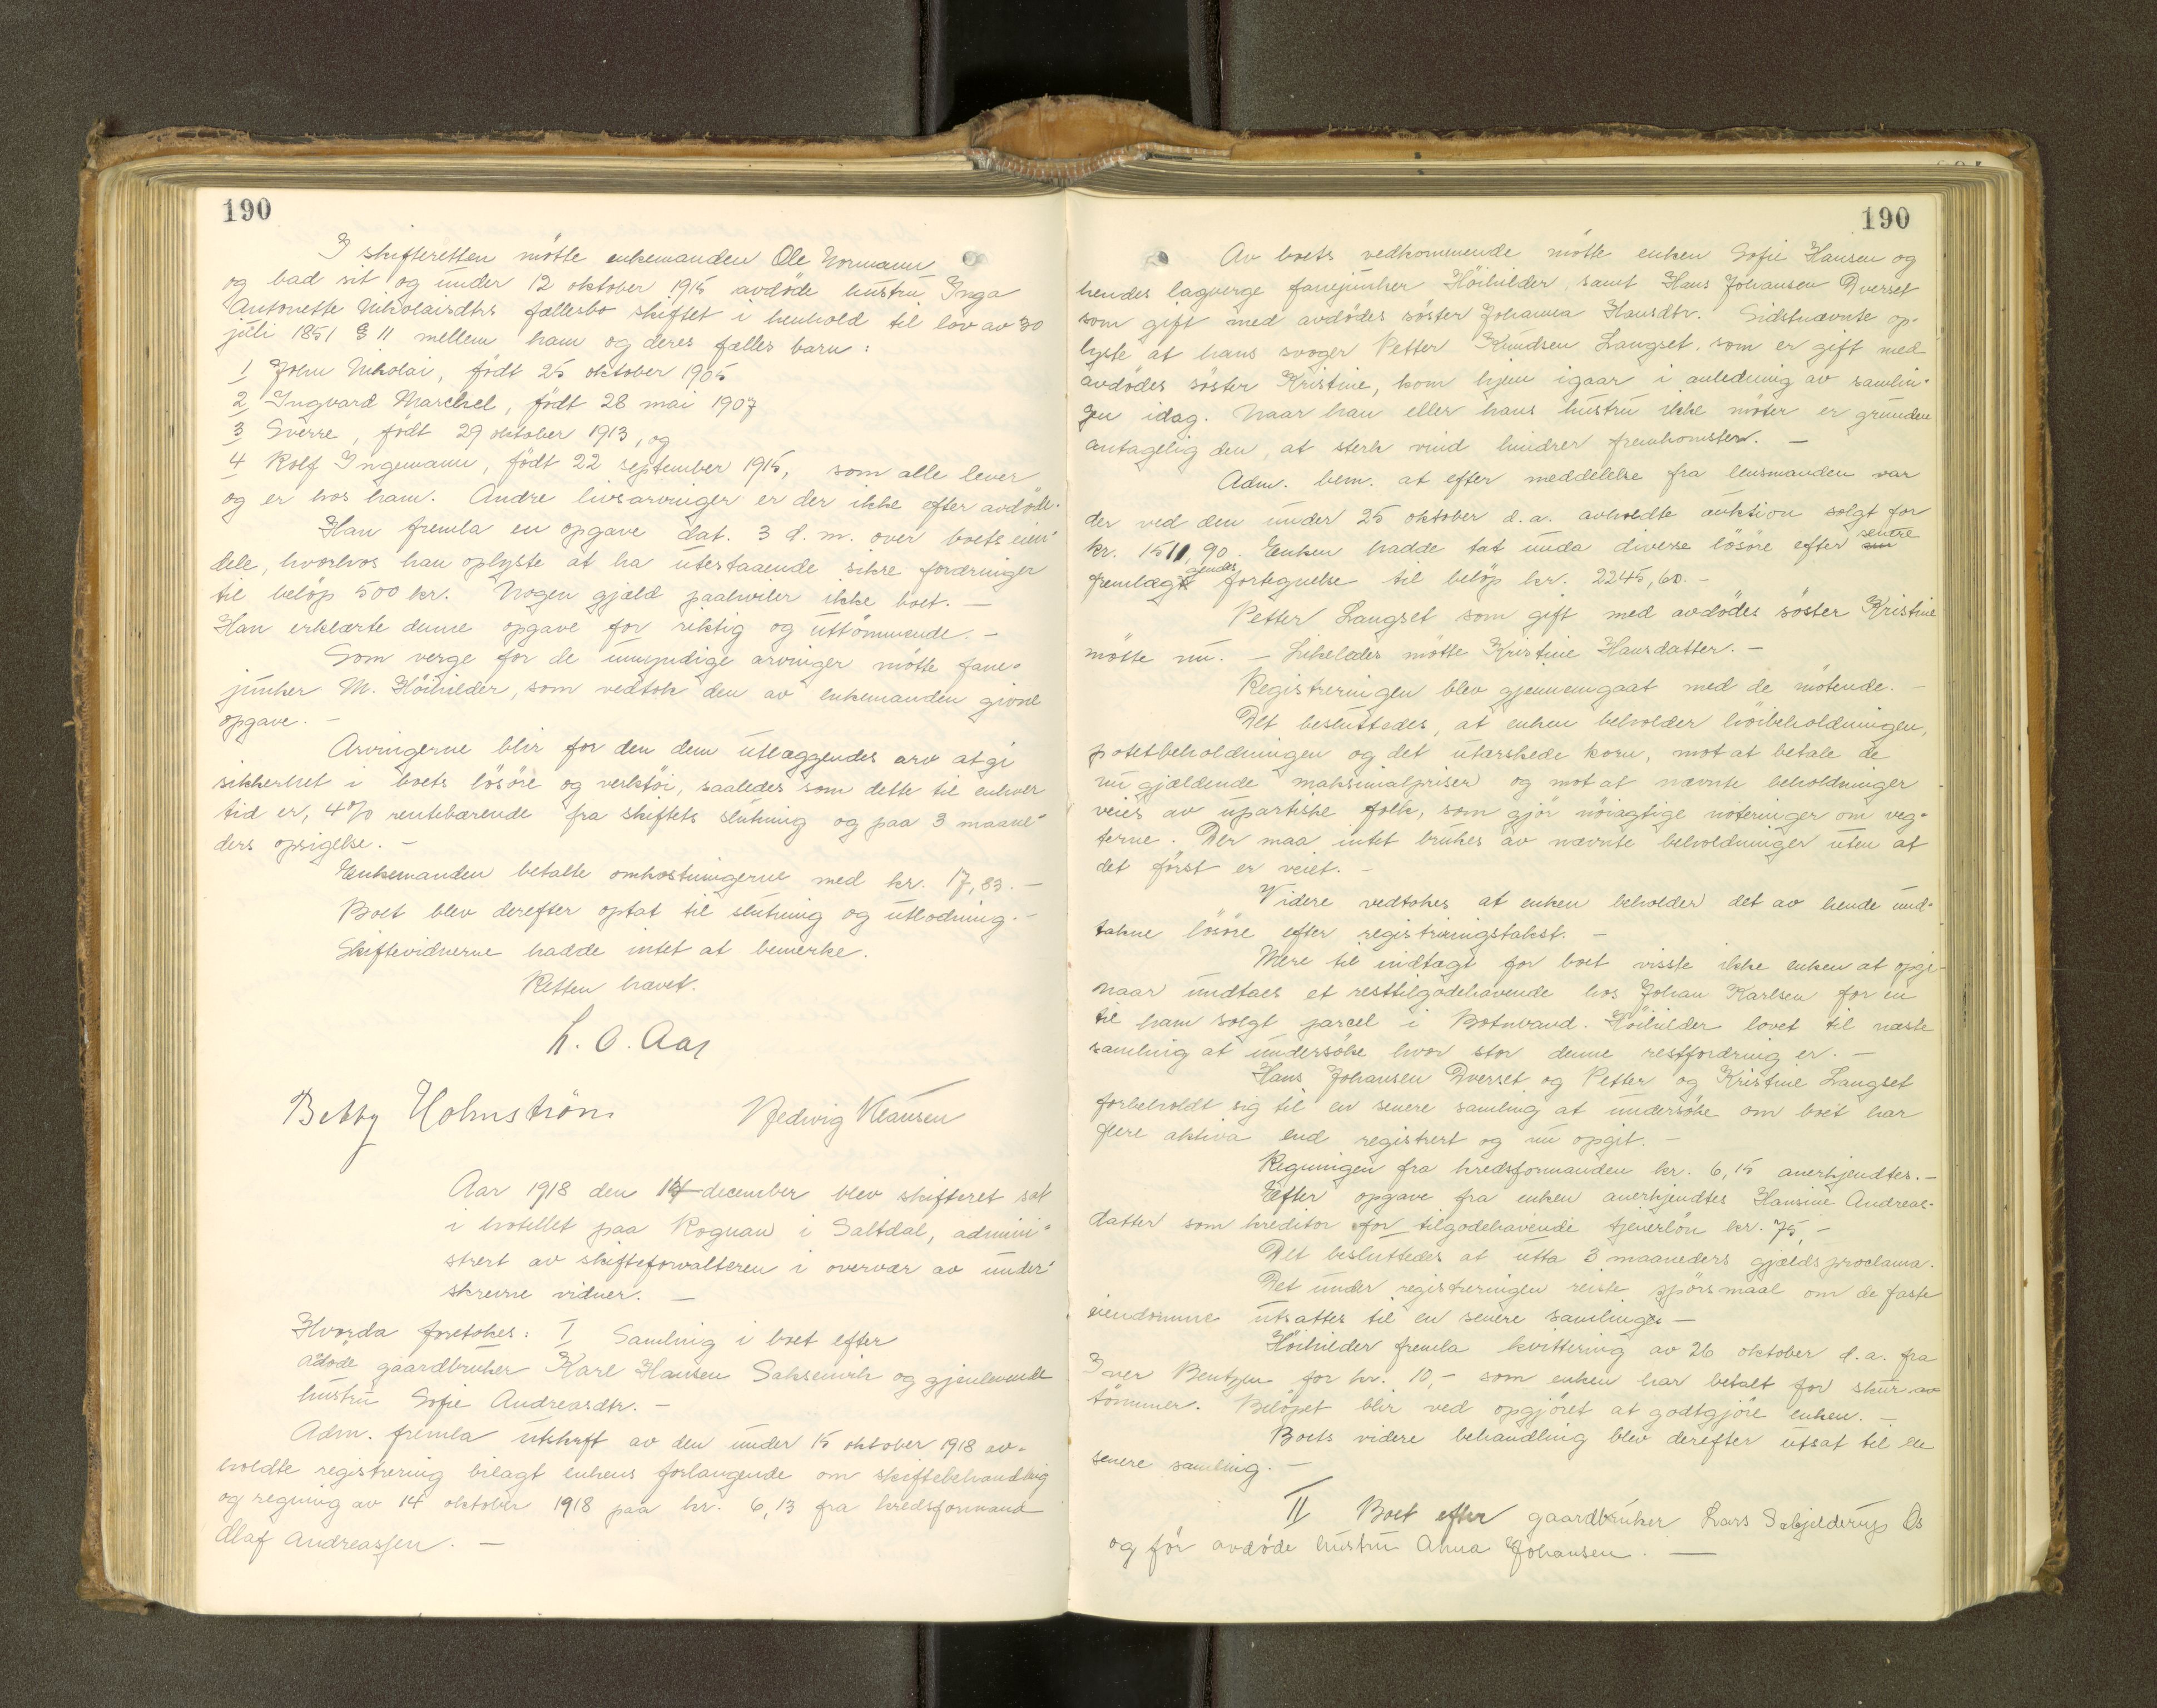 190
I skifteretten mötte enkemanden Ole Normann
og bad sit og under 12 oktober 1915 avdöde hustru Inga
Antonette Nikolaisdtrs fællesbo skiftet i henhold til lov av 30
juli 1851 § 11 mellem ham og deres fælles barn:
1 John Nikolai, födt 25 oktober 1905
2 Ingvard Marchel, födt 28 mai 1907
3 Sverre, födt 29 oktober 1913, og
4 Rolf Ingemann, födt 22 september 1915, som alle lever
og er hos ham. Andre livsarvinger er der ikke efter avdöde.
Han fremla en opgave dat. 3 d.m. over boets eien-
dele, hvorhos han oplyste at ha utestaaende sikre fordringer
til belöp 500 kr. Nogen gjæld paahviler ikke boet. —
Han erklærte denne opgave for riktig og uttömmende. —
Som verge for de umyndige arvinger mötte fane-
junker M. Höihilder, som vedtok den av enkemanden givne
opgave. —
Arvingerne blir for den dem utlæggendes arv at gi
sikkerhet i boets lösöre og verktöi, saaledes som dette til enhver
tid er, 4% rentebærende fra skiftets slutning og paa 3 maane-
ders opsigelse. —
Enkemanden betalte omkostningerne med kr. 17,83. —
Boet blev derefter optat til slutning og utlodning. —
Skiftevidnerne hadde intet at bemerke.
Retten hævet.
L. O. Aas
Betty Holmström Hedvig Klausen
Aar 1918 den 14 december blev skifteret sat
i hotellet paa Rognan i Saltdal, admini-
strert av skifteforvalteren i overvær av under-
skrevne vidner. —
Hvorda foretokes: I Samling i boet efter
adöde gaardbruker Karl Hansen Saksenvik og gjenlevende
hustru Sofie Andreasdtr. —
Adm. fremla utskrift av den under 15 oktober 1918 av-
holdte registrering bilagt enkens forlangende om skiftebehandling
og regning av 14 oktober 1918 paa kr. 6,13 fra kredsformand
Olaf Andreassen. —
190
Av boets vedkommende mötte enken Sofie Hansen og
hendes lagverge fanejunker Höihilder, samt Hans Johansen Dverset
som gift med avdödes söster Johanna Hansdtr. Sidstnævnte op-
lyste at hans svoger Petter Knudsen Langset, som er gift med
avdödes söster Kristine, kom hjem igaar i anledning av samlin-
gen idag. Naar han eller hans hustru ikke möter er grunden
antagelig den, at sterk vind hindrer fremkomsten. —
Adm. bem. at efter meddelelse fra lensmanden var
der ved den under 25 oktober d.a. avholdte auktion solgt for
kr. 1511,90. Enken hadde tat unda diverse lösöre efter senere
fremlæggendes fortegnelse til belöp kr. 2245,60. —
Petter Langset som gift med avdödes söster Kristine
mötte nu. — Likeledes mötte Kristine Hansdatter. —
Registreringen blev gjennemgaat med de mötende. —
Det besluttedes, at enken beholder höibeholdningen,
potetbeholdningen og det utærskede korn, mot at betale de
nu gjældende maksimalpriser og mot at nævnte beholdninger
veies av upartiske folk, som gjör nöiagtige noteringer om veg-
terne. Der maa intet brukes av nævnte beholdninger uten at
det först er veiet. —
Videre vedtokes at enken beholder det av hende und-
tahne lösöre efter registreringstakst. —
Mere til indtægt for boet visste ikke enken at opgi
naar undtaes et resttilgodehavende hos Johan Karlsen for en
til ham solgt parcel i Botnvand. Höihilder lovet til næste
samling at undersöke hvor stor denne restfordring er. —
Hans Johansen Dverset og Petter og Kristine Langset
forbeholdt sig til en senere samling at undersöke om boet har
flere aktiva end registrert og nu opgit. —
Regningen fra kredsformanden kr. 6,15 anerkjendtes. —
Efter opgave fra enken anerkjendtes Hansine Andreas-
datter som kreditor for tilgodehavende tjenerlön kr. 75,—
Det besluttedes at utta 3 maaneders gjældsproclama.
Det under registreringen reiste spörsmaal om de faste
eiendomme utsattes til en senere samling. —
Höihilder fremla kvittering av 26 oktober d.a. fra
Iver Bentzen for kr. 10,— som enken har betalt for skur av
tömmer. Belöpet blir ved opgjöret at godtgjöre enken. —
Boets videre behandling blev derefter utsat til en
senere samling. —
II Boet efter gaardbruker Lars Schjelderup Os
og för avdöde hustru Anna Johansen. —